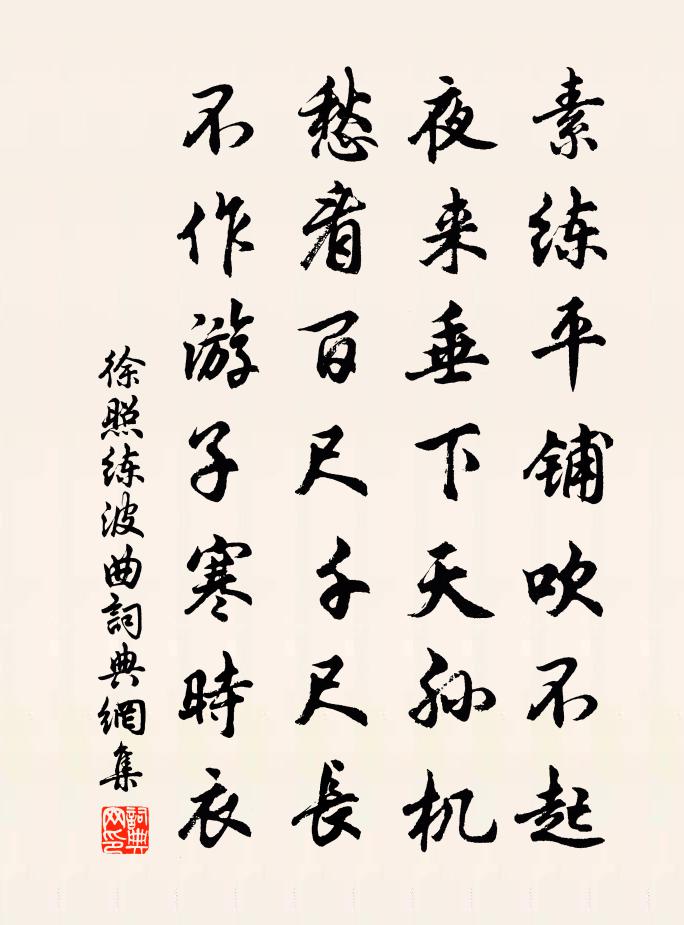 素练平铺吹不起
夜来垂下天孙机
愁看百尺千尺長
不作游子寒時衣
徐照练波曲詞典網集
詞典網印